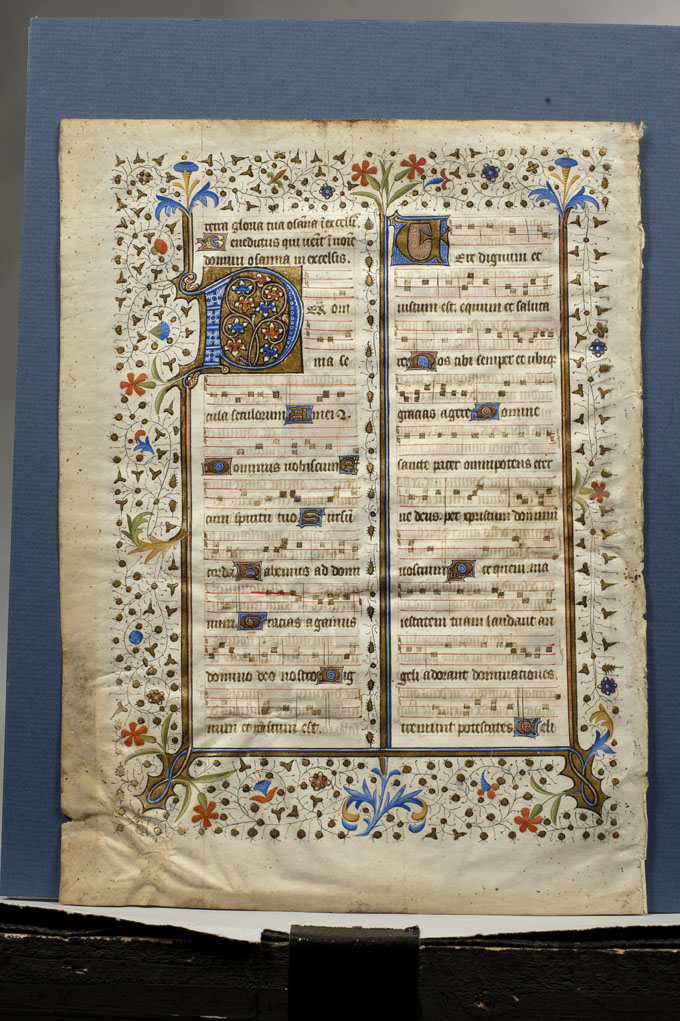 terra gloria tua osanna i excelsis
Benedictus qui venit i noie
domini osanna in excelsis.
Per om
nia se
cula seculorum Amen R.
Dominus vobiscum E
cum spiritu tuo Sursum
corda Habemus ad domi
num Gracias agamus
domino deo nostro Dig
num et iustum est.
UEre dignum et
iustum est. equum et saluta
re. Nos tibi semper et ubiq;
gracias agere Domine
sancte pater omnipotens eter
ne deus. per xpristum dominum
nostrum Per quem. ma
iestatem tuam laudant an
geli adorant dominationes
tremunt potestates Celi